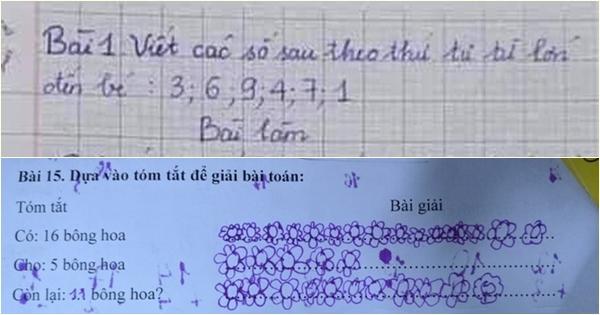 Bài 1. Viết các số sau theo thứ tự từ lớn
đến bé : 3; 6; 9; 4; 7; 1
Bài làm
Bài 15. Dựa vào tóm tắt để giải bài toán:
Tóm tắt
Bài giải
Có: 16 bông hoa
Cho: 5 bông hoa
Còn lại: 11 bông hoa?